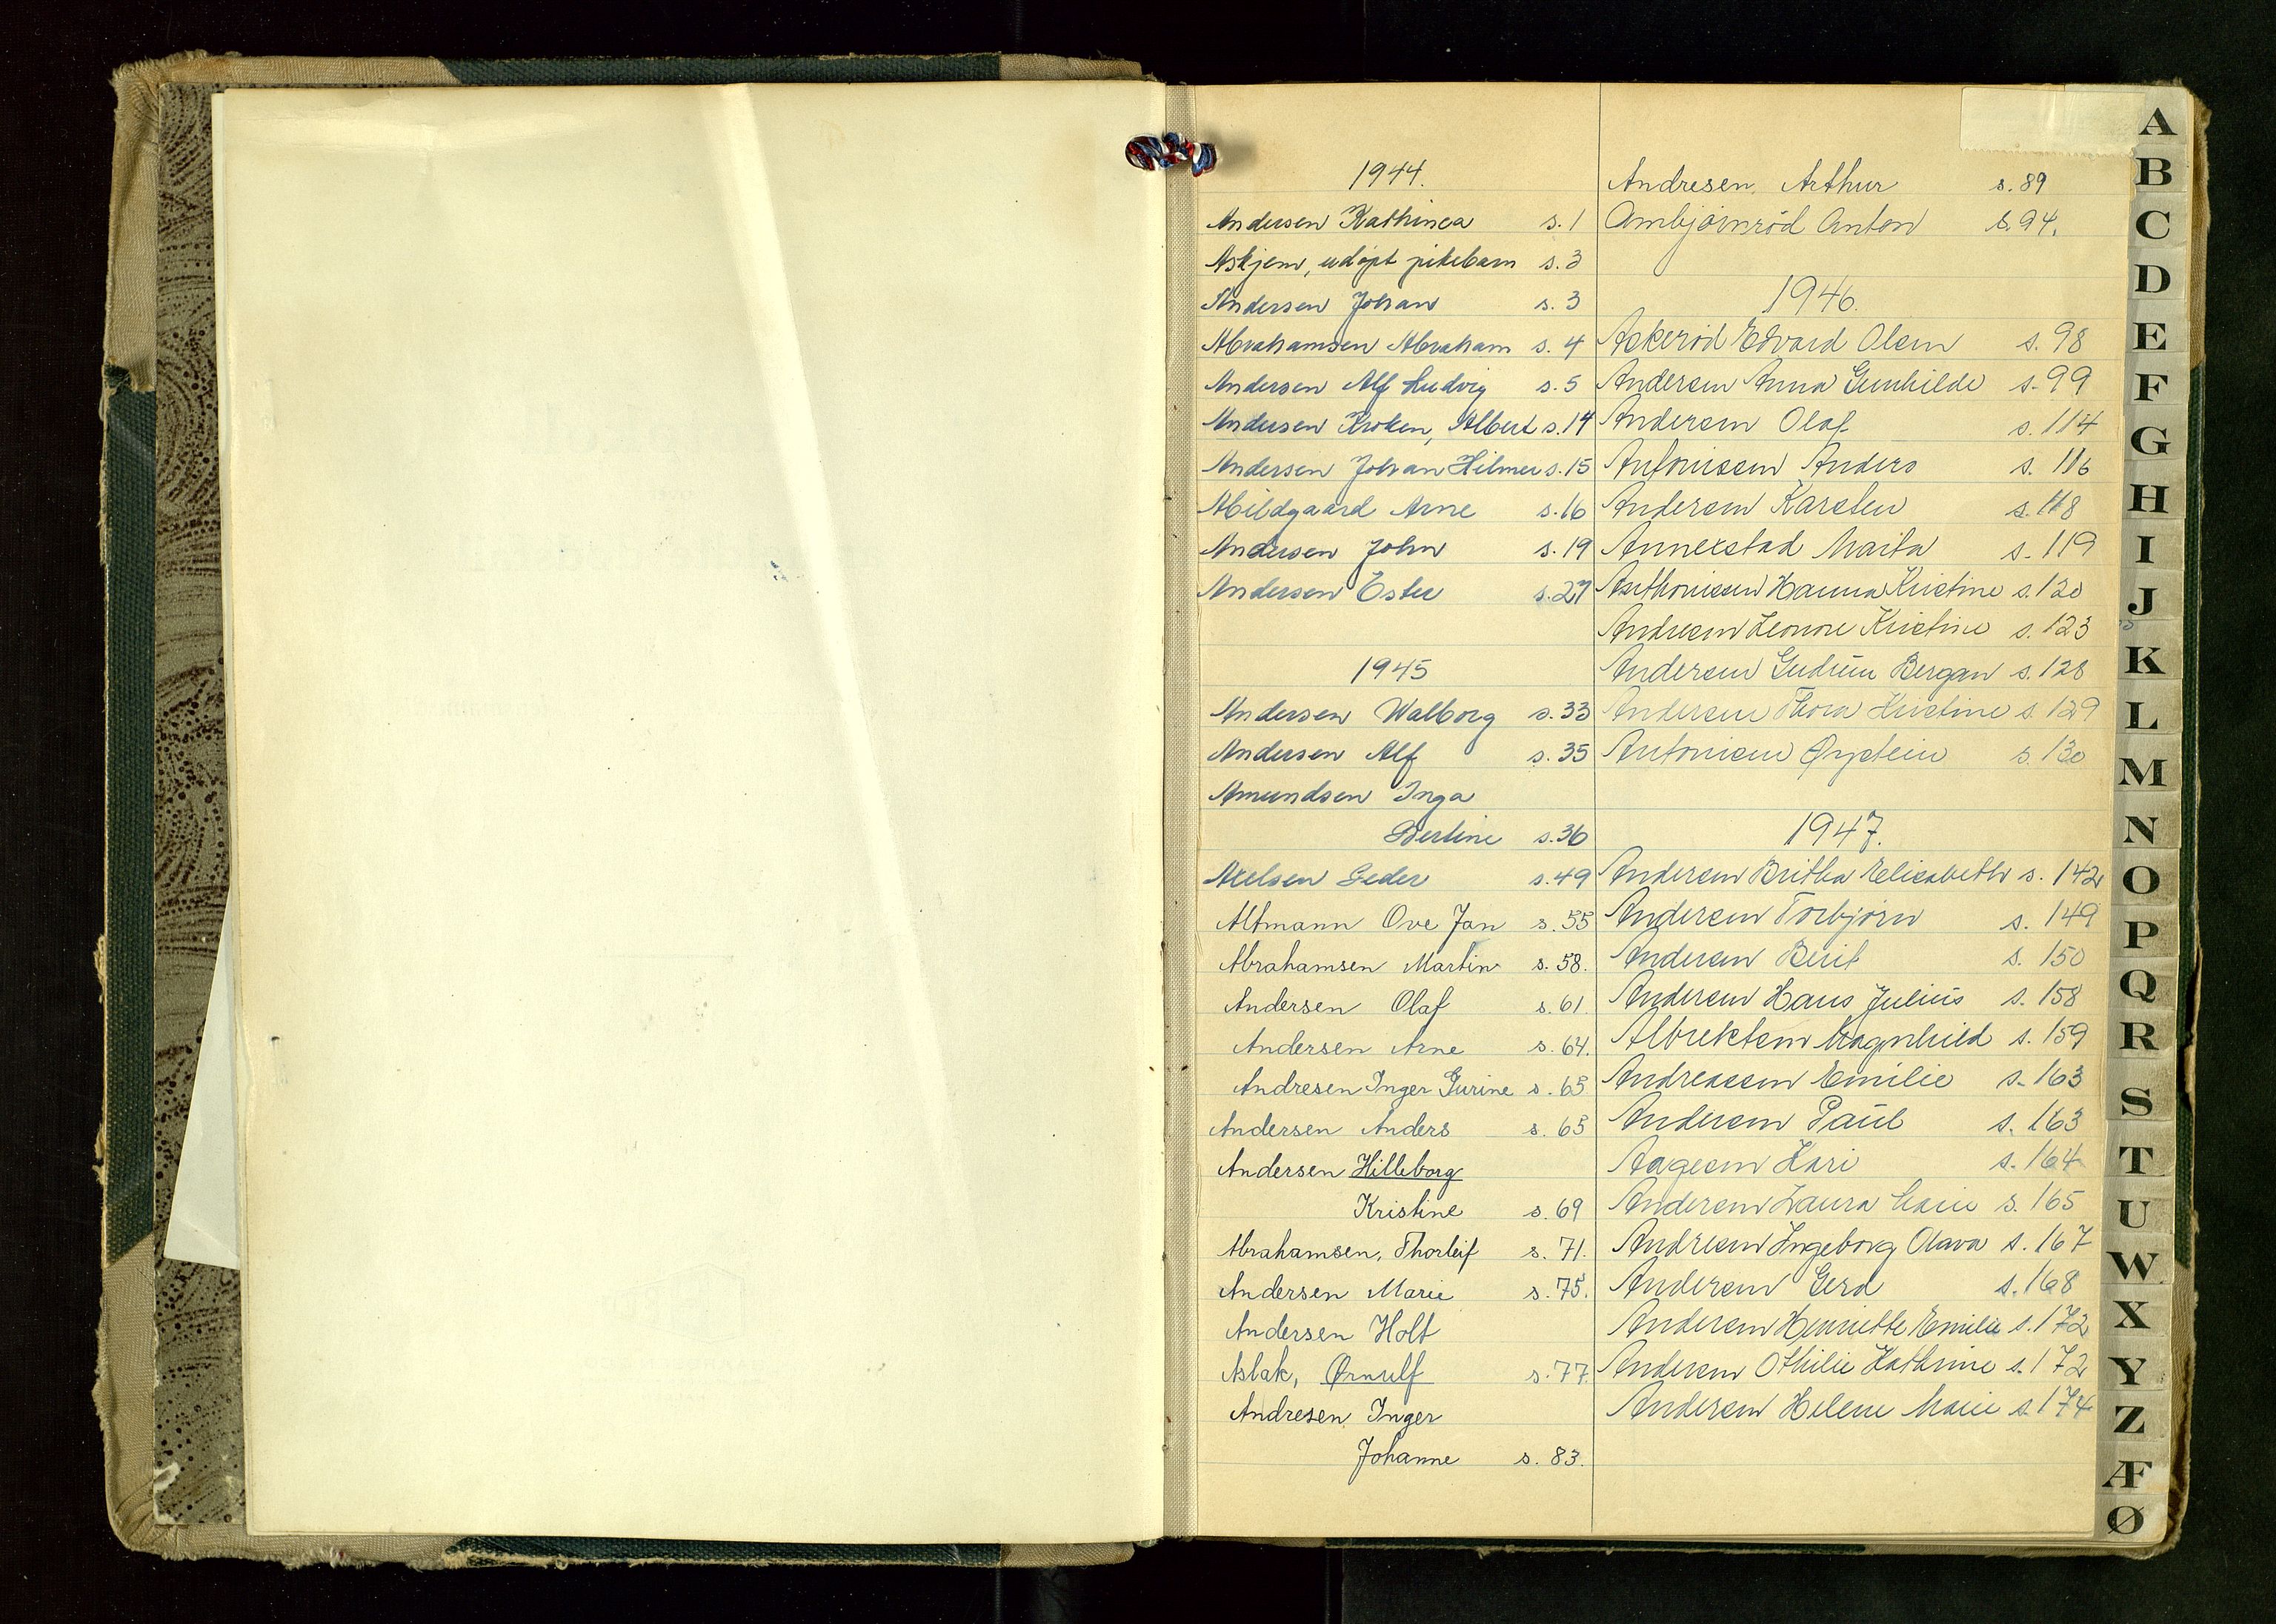 1944.
Andersen Kathinca s. 1
Askjem, udøpt pikebarn s. 3
Andersen Johan s. 3
Abrahamsen Abraham s. 4
Andersen Alf Ludvig s. 5
Andersen Kroken, Albert s. 14
Andersen Johan Hilmer s. 15
Abildgaard Arne s. 16
Andersen John s. 19
Andersen Ester s. 27
1945
Andersen Walborg s. 33
Andersen Alf s. 35
Amundsen Inga
Bertine s. 36
Axelsen Peder s. 49
Altmann Ove Jan s. 55
Abrahamsen Martin s. 58.
Andersen Olaf s. 61.
Andersen Arne s. 64.
Andresen Inger Gurine s. 65
Andersen Anders s. 65
Andersen Hilleborg
Kristine s. 69
Abrahamsen, Thorleif s. 71.
Andersen Marie s. 75.
Andersen Holt
Aslak, Ørnulf s. 77.
Andresen Inger
Johanne s. 83.
Andresen, Arthur s. 89
Ambjørnrød Anton s. 94.
1946.
Askerød Edvard Olsen s. 98
Andersen Anna Gunhilde s. 99
Andersen Olaf s. 114
Antonissen Anders s. 116
Andersen Karsten s. 118
Annexstad Marta s. 119
Anthonisen Hanna Kristine s. 120
Andresen Leonore Kristine s. 123
Andersen Gudrun Bergan s. 128
Andersen Thora Kristine s. 129
Antonisen Øystein s. 130
1947.
Andersen Britha Elisabeth s. 142
Andersen Torbjørn s. 149
Andersen Berit s. 150
Andersen Hans Julius s. 158
Albrektsen Magnhild s. 159
Andreassen Emilie s. 163
Andersen Paul s. 163
Aagesen Kari s. 164
Andersen Laura Marie s. 165
Andresen Ingeborg Olava s. 167
Andersen Gerd s. 168
Andersen Henriette Emilie s. 172
Andersen Othilie Kathrine s. 172
Andersen Helene Marie s. 174
A
B
C
D
E
F
G
H
I
J
K
L
M
N
O
P
Q
R
S
T
U
W
X
Y
Z
Æ
Ø